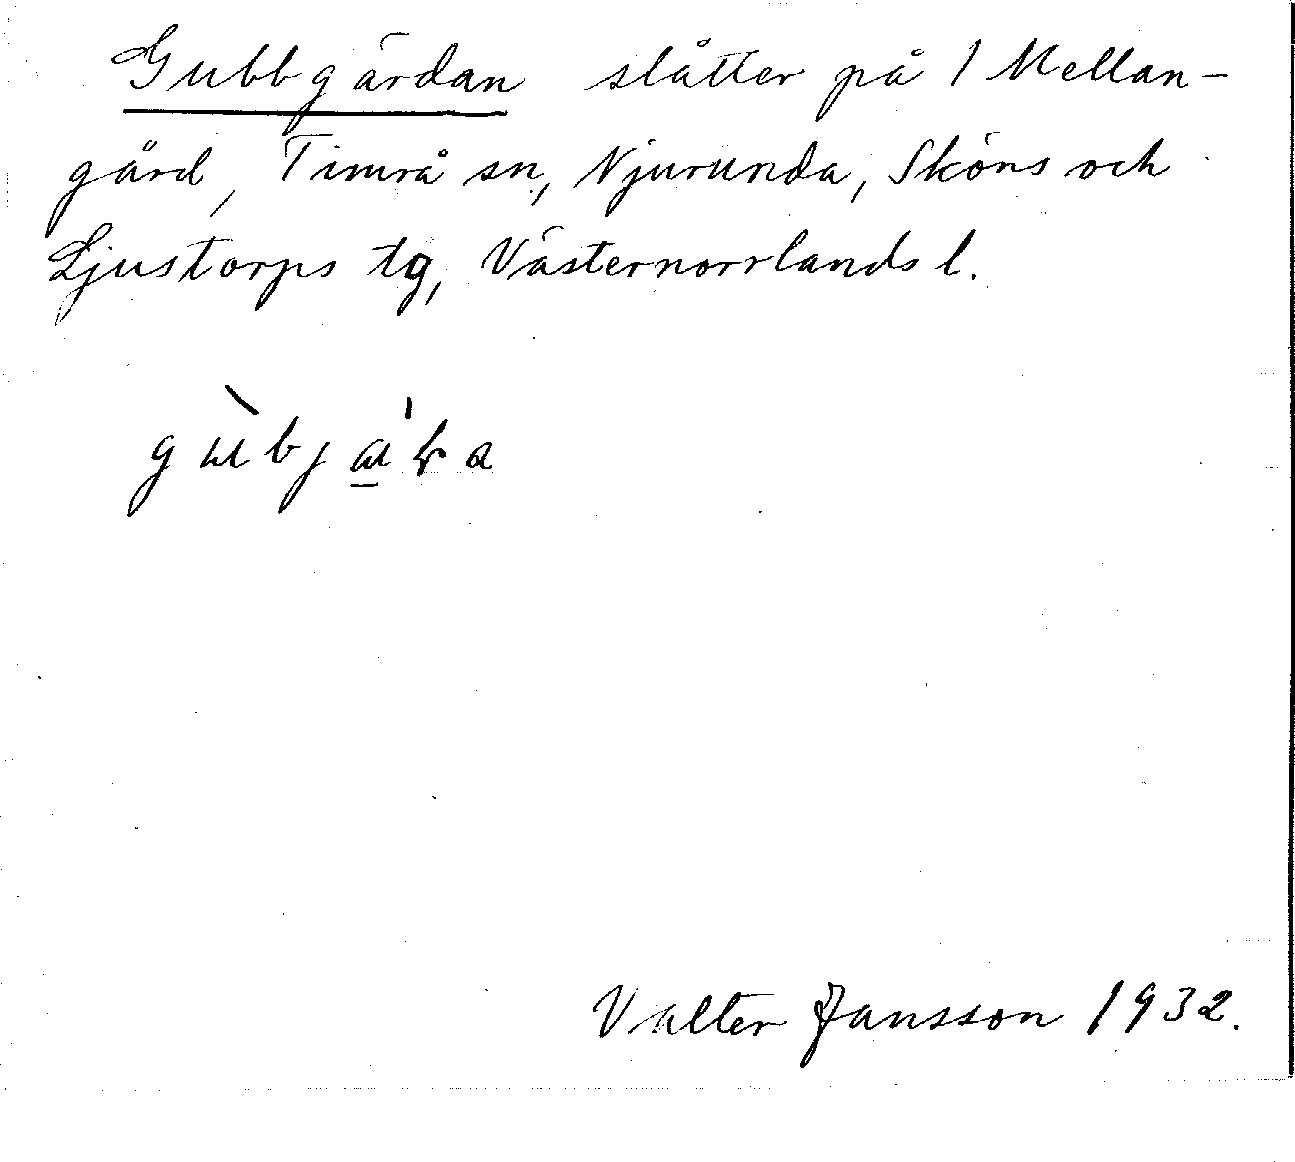 Gubbgärdan slåtter på 1 Mellan-
gård, Timrå sn, Njurunda, Sköns och
Ljustorps tg, Västernorrlands l.
Valter Jansson 1932.